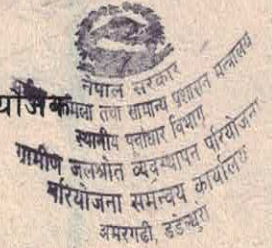 नेपाल सरकार
मिला तथा सामान्य प्रशासन मन्त्रालय
स्थानीय पूर्वाधार विभाग
ग्रामीण जलश्रोत व्यवस्थापन परियोजना
परियोजना समन्वय कार्यालय
अमरगढी, डडेल्धुरा